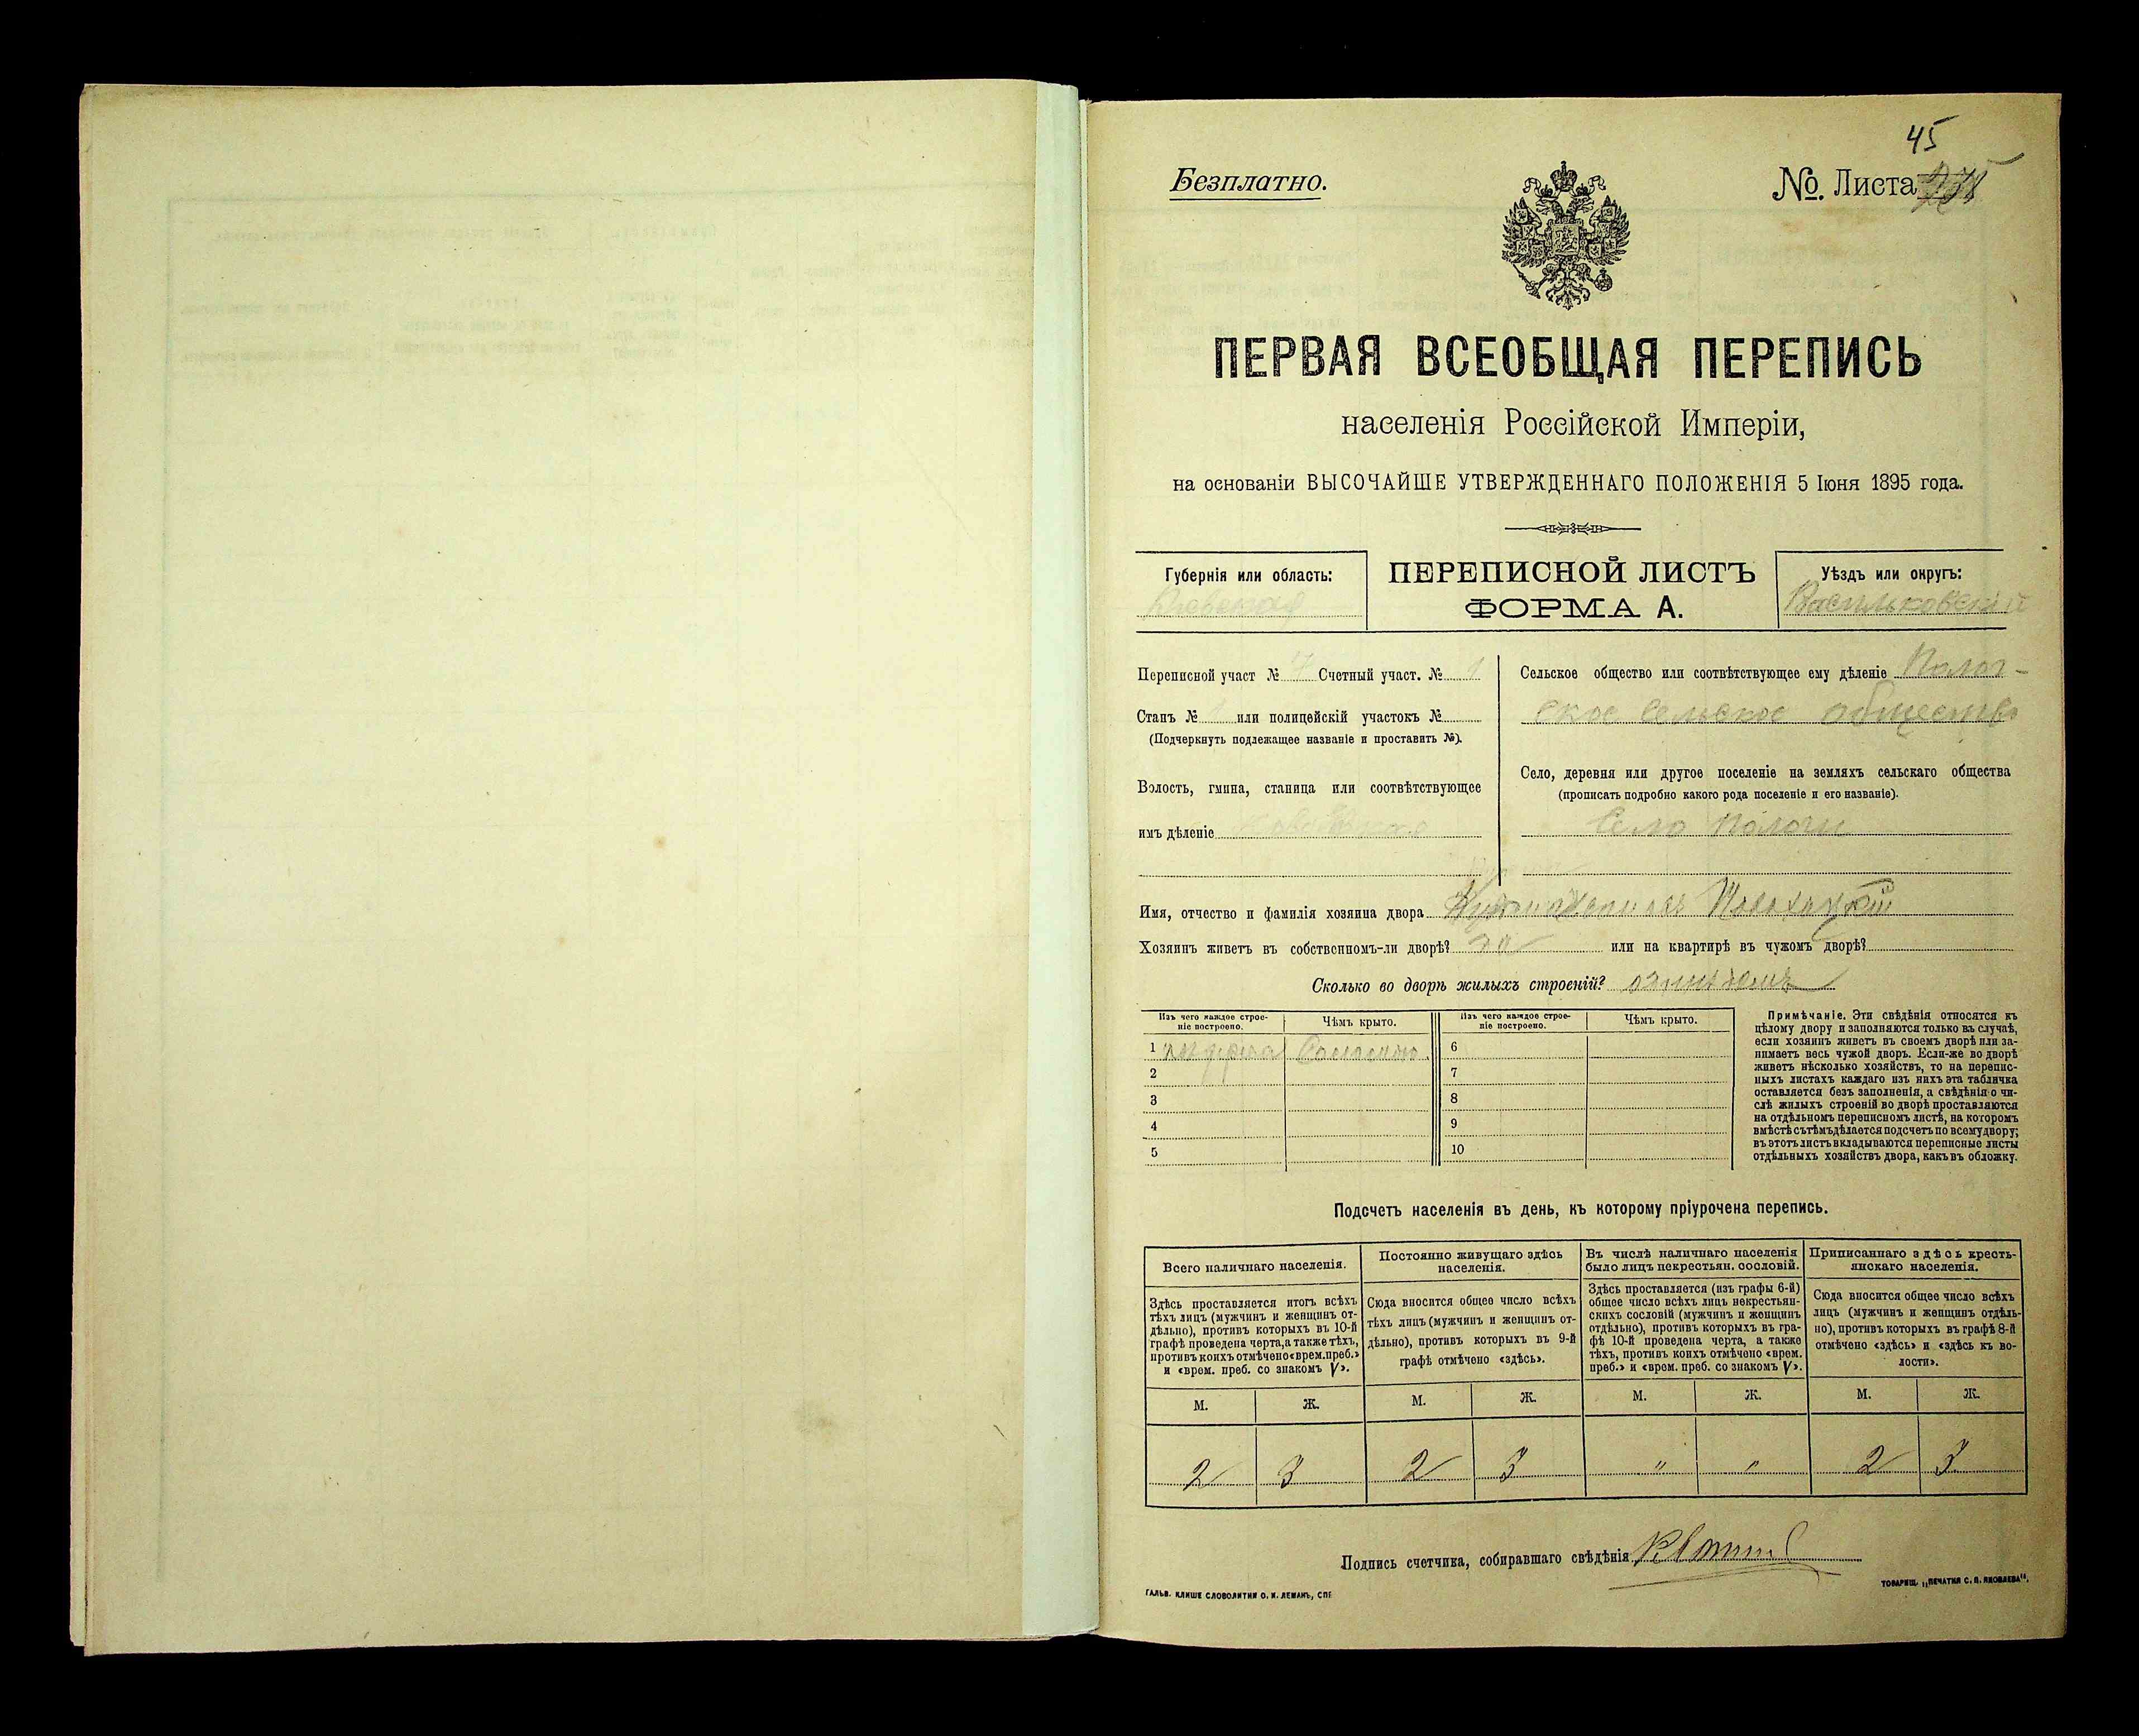 45
Безплатно.
№. Листа
ПЕРВАЯ ВСЕОБЩАЯ ПЕРЕПИСЬ
населенія Россійской Имперіи,
на основаніи ВЫСОЧАЙШЕ УТВЕРЖДЕННАГО ПОЛОЖЕНІЯ 5 Іюня 1895 года.
Губернія или область:
Кіевская
ПЕРЕПИСНОЙ ЛИСТЪ
ФОРМА А.
Уѣздъ или округъ:
Васильковскій
Переписной участ № 7 Счетный участ. № 1
Станъ № 1 или полицейскій участокъ №
(Подчеркнуть подлежащее названіе и проставить №).
Волость, гмина, станица или соотвѣтствующее
имъ дѣленіе
Сельское общество или соотвѣтствующее ему дѣленіе Полог-
ское сельское общество
Село, деревня или другое поселеніе на земляхъ сельскаго общества
(прописать подробно какого рода поселеніе и его названіе).
Село Пологи
Имя, отчество и фамилія хозяина двора
Хозяинъ живетъ въ собственномъ-ли дворѣ? да или на квартирѣ въ чужомъ дворѣ?
Сколько во дворѣ жилыхъ строеній?
Изъ чего каждое строе-
ніе построено.
Чѣмъ крыто.
Изъ чего каждое строе-
ніе построено.
Чѣмъ крыто.
1 Соломою 6
2 7
3 8
4 9
5 10
Примѣчаніе. Эти свѣдѣнія относятся къ
цѣлому двору и заполняются только въ случаѣ,
если хозяинъ живетъ въ своемъ дворѣ или за-
нимаетъ весь чужой дворъ. Если-же во дворѣ
живетъ нѣсколько хозяйствъ, то на перепис-
ныхъ листахъ каждаго изъ нихъ эта табличка
оставляется безъ заполненія, а свѣдѣнія о чи-
слѣ жилыхъ строеній во дворѣ проставляются
на отдѣльномъ переписномъ листѣ, на которомъ
вмѣстѣ съ тѣмъ дѣлается подсчетъ по всему двору;
въ этотъ листъ вкладываются переписные листы
отдѣльныхъ хозяйствъ двора, какъ въ обложку.
Подсчетъ населенія въ день, къ которому пріурочена перепись.
Всего наличнаго населенія.
Здѣсь проставляется итогъ всѣхъ
тѣхъ лицъ (мужчинъ и женщинъ от-
дѣльно), противъ которыхъ въ 10-й
графѣ проведена черта, а также тѣхъ,
противъ коихъ отмѣчено «врем. преб.»
и «врем. преб. со знакомъ V».
Постоянно живущаго здѣсь
населенія.
Сюда вносится общее число всѣхъ
тѣхъ лицъ (мужчинъ и женщинъ от-
дѣльно), противъ которыхъ въ 9-й
графѣ отмѣчено «здѣсь».
Въ числѣ наличнаго населенія
было лицъ некрестьян. сословій.
Здѣсь проставляется (изъ графы 6-й)
общее число всѣхъ лицъ некрестьян-
скихъ сословій (мужчинъ и женщинъ
отдѣльно), противъ которыхъ въ гра-
фѣ 10-й проведена черта, а также
тѣхъ, противъ коихъ отмѣчено «врем.
преб.» и «врем. преб. со знакомъ V».
Приписаннаго здѣсь кресть-
янскаго населенія.
Сюда вносится общее число всѣхъ
лицъ (мужчинъ и женщинъ отдѣль-
но), противъ которыхъ въ графѣ 8-й
отмѣчено «здѣсь» и «здѣсь къ во-
лости».
М. Ж. М. Ж. М. Ж. М. Ж.
2 3 2 3 " " 2 3
Подпись счетчика, собиравшаго свѣдѣнія
ГАЛЬВ. КЛИШЕ СЛОВОЛИТНИ О. И. ЛЕМАНЪ, СПБ
ТОВАРИЩ. „ПЕЧАТНЯ С. П. ЯКОВЛЕВА".